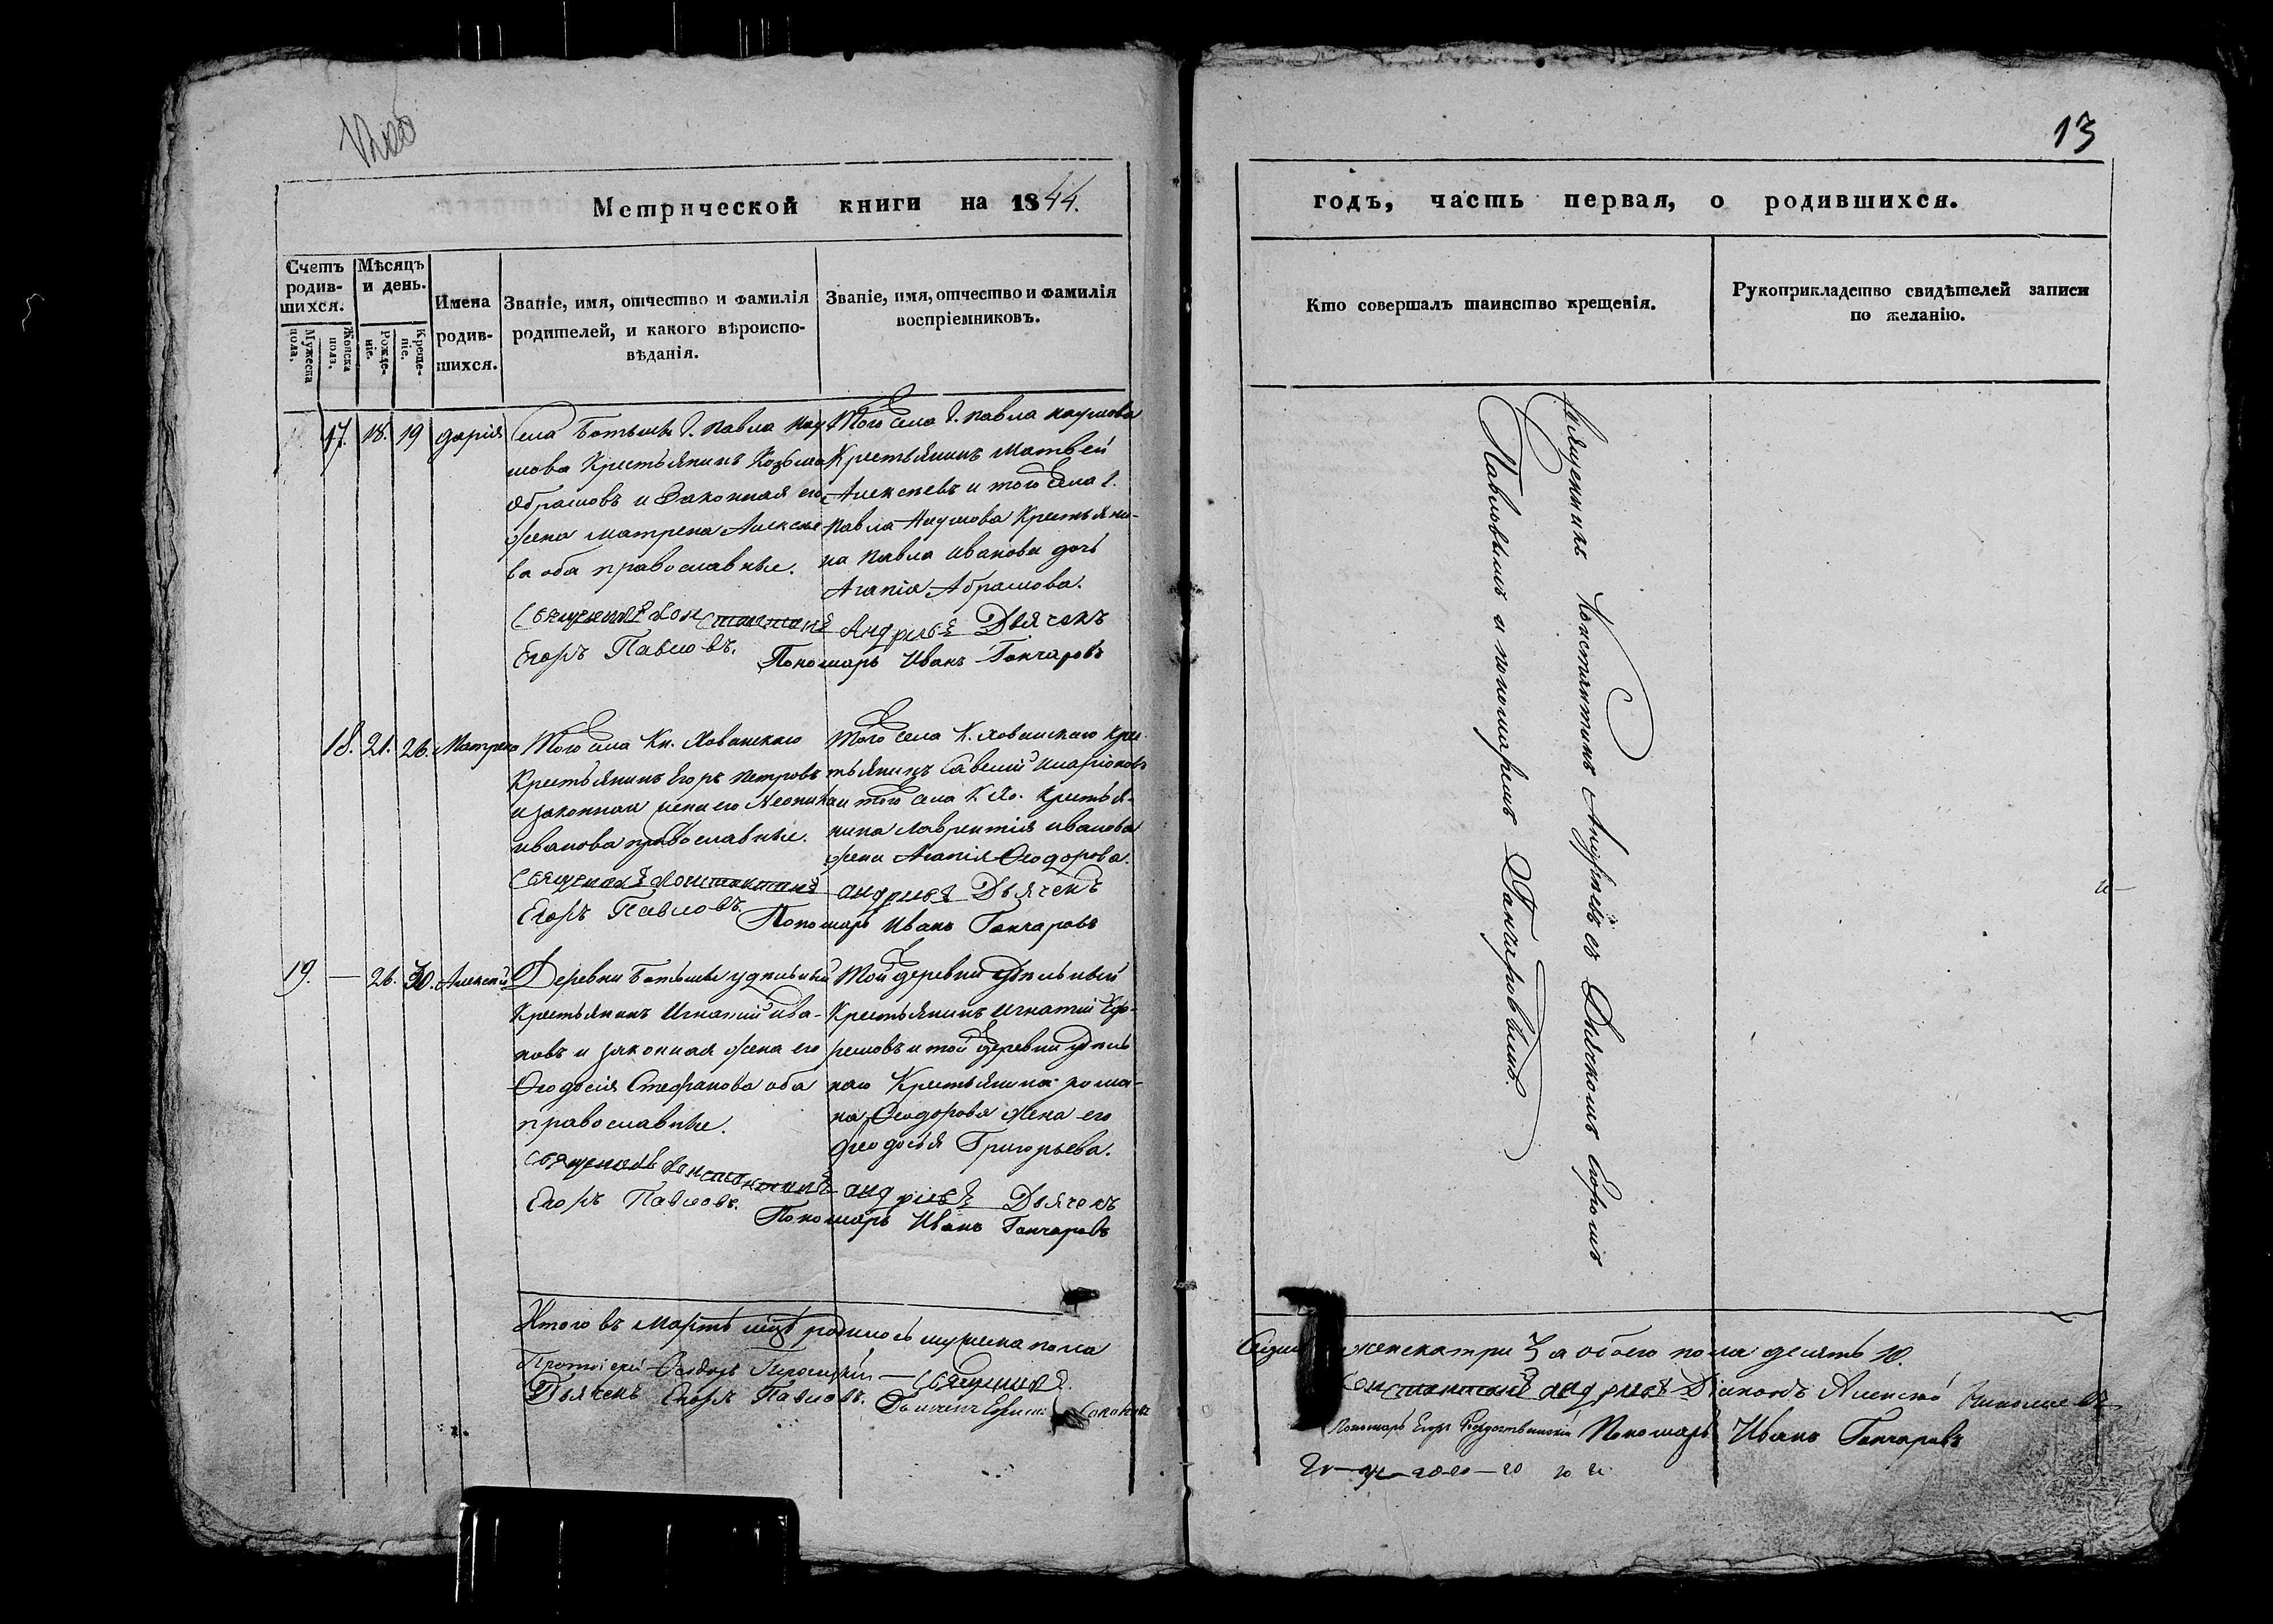 13
Метрической книги на 1844.
годъ, часть первая, о родившихся.
Счетъ родив-шихся.
Мужеска пола.
Женска пола.
Мѣсяцъ и день.
Рожде-ніе.
Креще-ніе.
Имена
родив-
шихся.
Званіе, имя, отчество и фамилія
родителей, и какого вѣроиспо-
вѣданія.
Званіе, имя, отчество и фамилія
воспріемниковъ.
Кто совершалъ таинство крещенія.
Рукоприкладство свидѣтелей записи
по желанію.
17. 18. 19 дарія
Села Ботьмы Г. павла нау
мова Крестьянинъ Козьма
Абрамовъ и Законная его
жена матрена Алексее
ва оба православные.
Того Села Г. павла наумова
Крестьянинъ Матвей
Алексѣевъ и того Села Г.
павла Наумова Крестьяни-
на павла иванова дочь
Агапія Абрамова.
Священникъ Константинъ Андреевъ Дьячекъ
Егоръ Павловъ. Пономарь Иванъ Гончаровъ
18. 21. 26. Матрена
Того села Кн. Хованскаго
Крестьянинъ Егоръ петровъ
и законная жена его
иванова православные.
Того села К. хованскаго Крес
тьянинъ Савелий иларіоновъ
и того села К. Хо. Крестья-
нина лаврентія иванова
жена Агапія Феодорова.
Священникъ Константинъ андреевъ Дьячекъ
Егоръ Павловъ. Пономарь Иванъ Гончаровъ
19. — 26. 30. Алексей
Деревни Ботьмы удельный
Крестьянинъ Игнатий ива-
новъ и законная жена его
Феодосія Стефанова оба
православные.
Той деревни удельный
Крестьянинъ игнатий Еф-
ремовъ и той деревни удель
наго Крестьянина рома-
на Феодорова жена его
феодосія Григорьева.
Священникъ Константинъ андреевъ Дьячекъ
Егоръ Павловъ. Пономарь Иванъ Гончаровъ
Священникъ Константинъ Андреевъ съ Дьячкомъ Егоромъ
Павловымъ и пономаремъ Гончаровымъ.
Итого въ Мартѣ мцѣ родилось мужеска пола
женска три 3 а обоего пола десять 10.
Протоіерей Феодоръ Священникъ
Константинъ андреевъ Діаконъ Алексей
Дьячекъ Егоръ Павловъ.
Пономарь Егоръ Рождественскій Пономарь Иванъ Гончаровъ